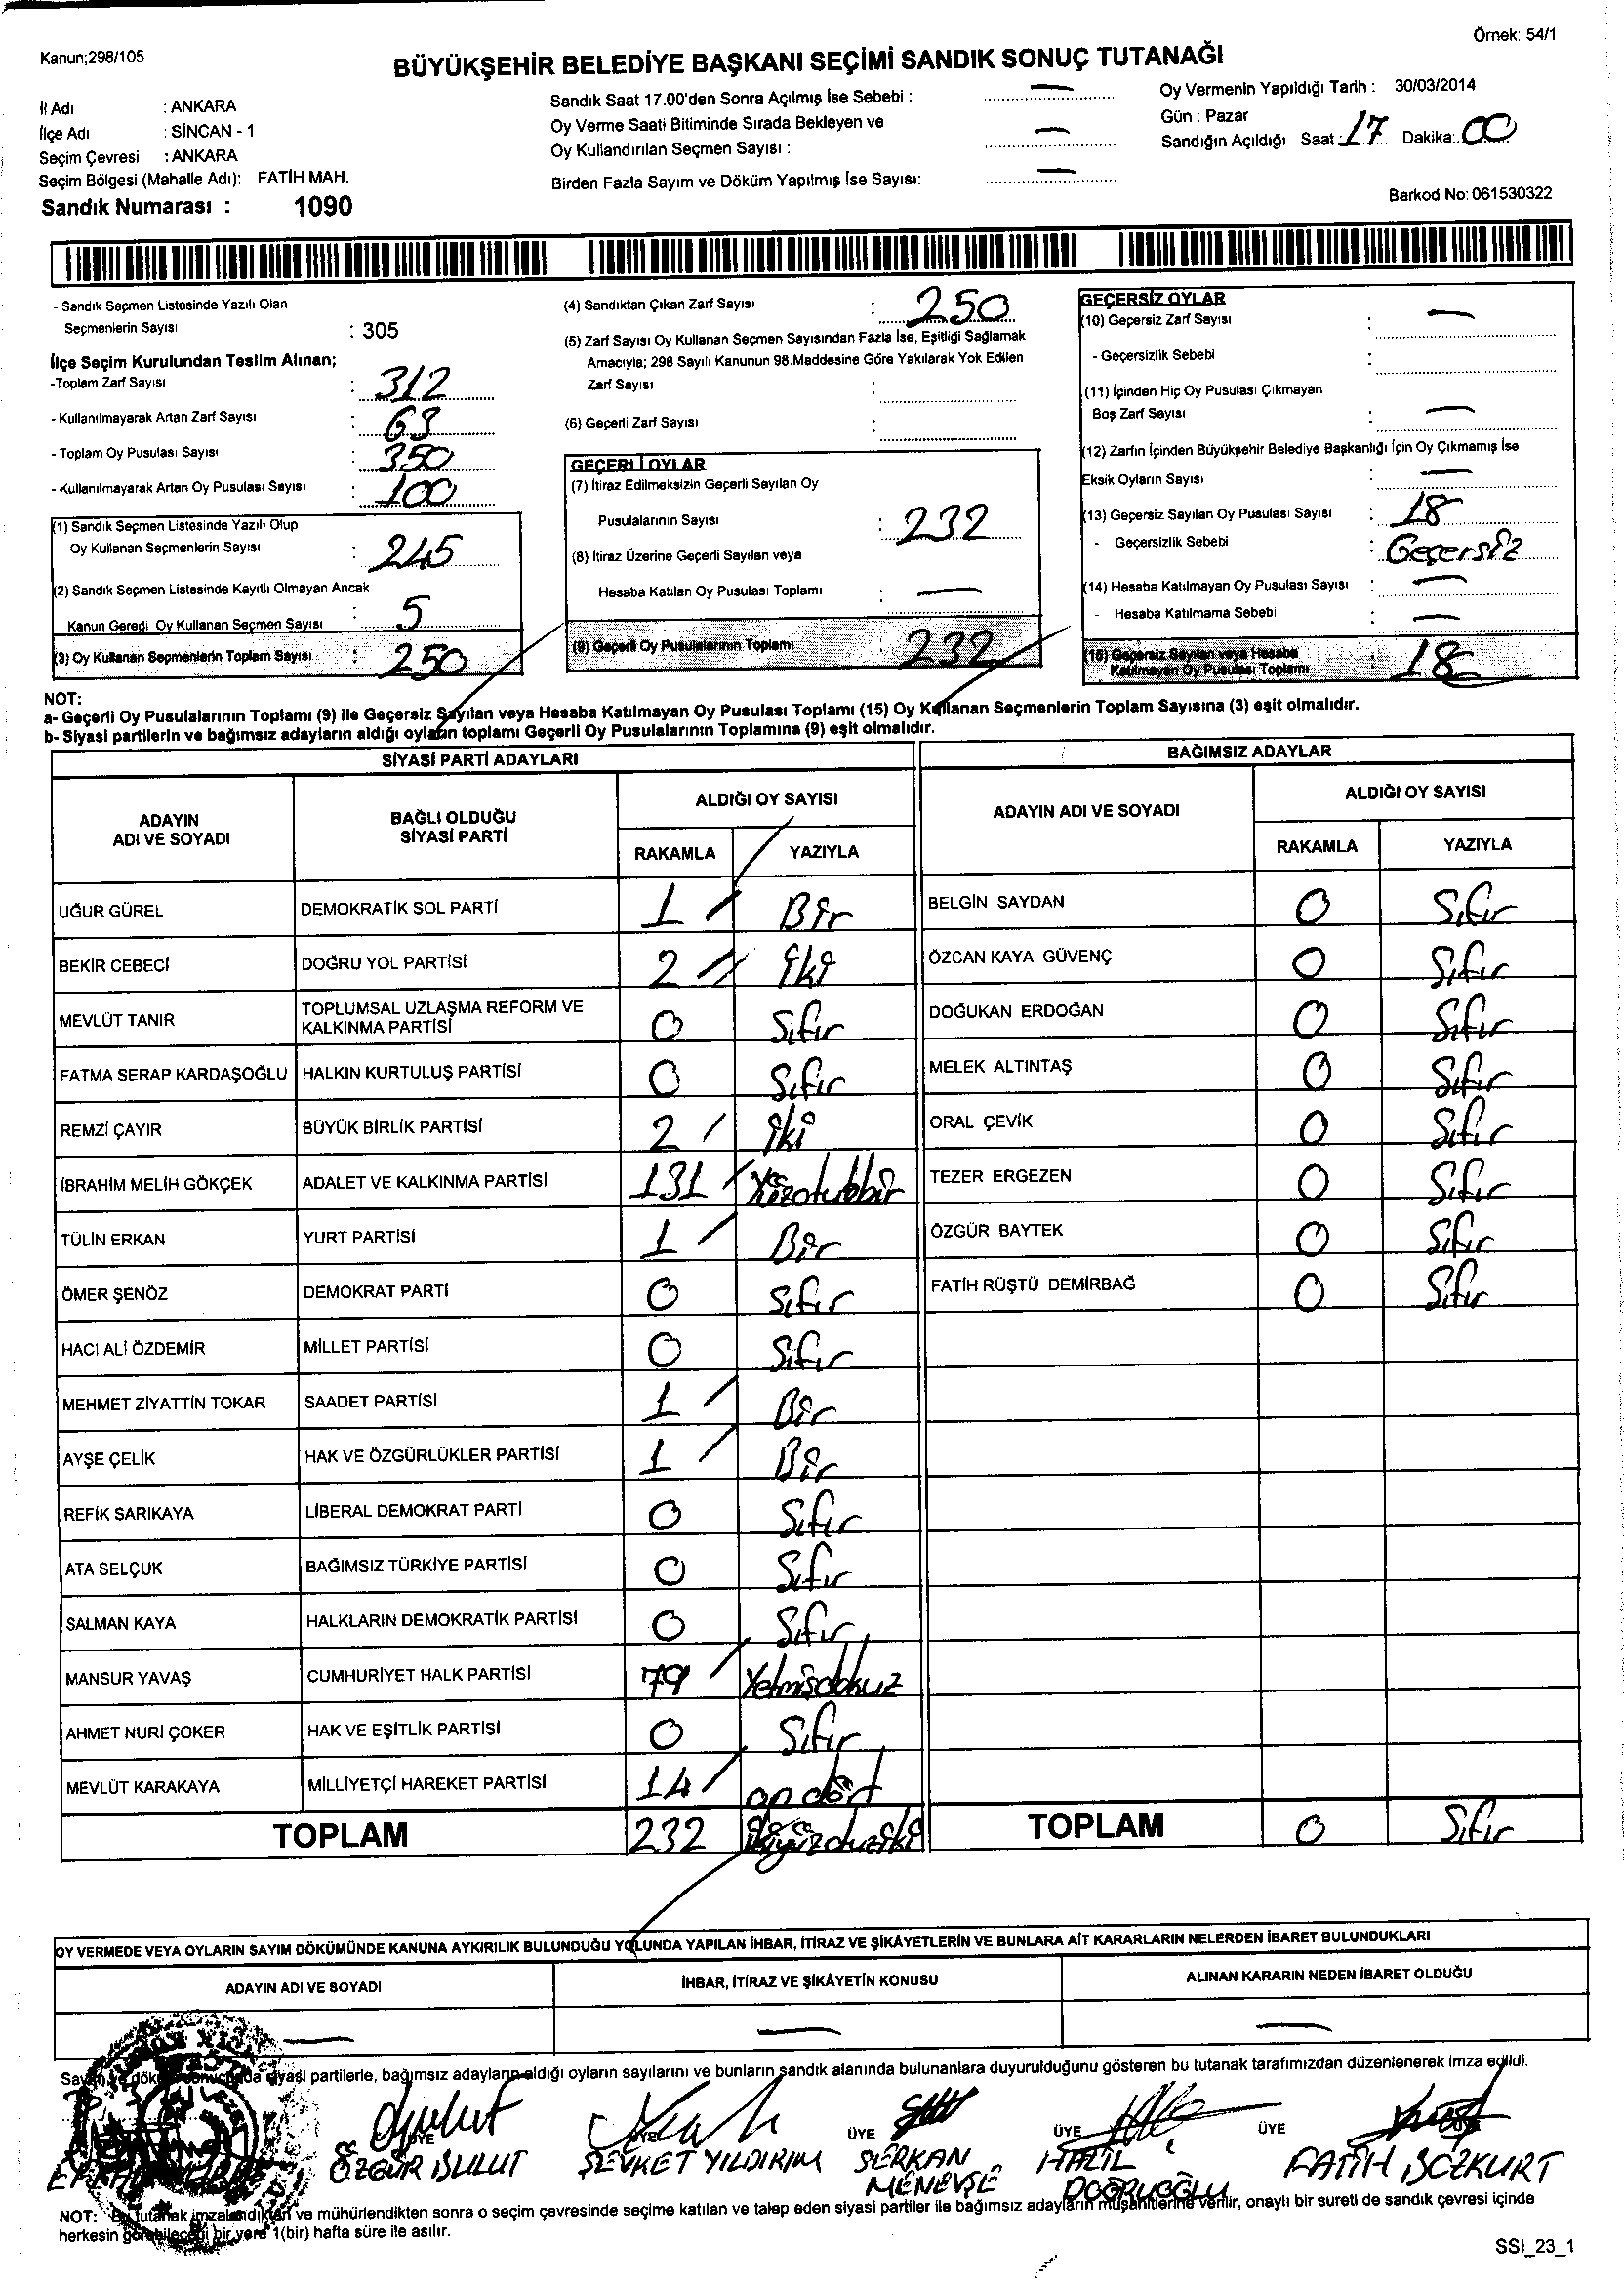 Örnek: 54/1
Kanun;298/105
BÜYÜKŞEHİR BELEDİYE BAŞKANI SEÇİMİ SANDIK SONUÇ TUTANAĞI
İl Adı : ANKARA
İlçe Adı : SİNCAN - 1
Seçim Çevresi : ANKARA
Seçim Bölgesi (Mahalle Adı): FATİH MAH.
Sandık Numarası : 1090
Sandık Saat 17.00'den Sonra Açılmış İse Sebebi : —
Oy Verme Saati Bitiminde Sırada Bekleyen ve
Oy Kullandırılan Seçmen Sayısı : —
Birden Fazla Sayım ve Döküm Yapılmış İse Sayısı: —
Oy Vermenin Yapıldığı Tarih : 30/03/2014
Gün : Pazar
Sandığın Açıldığı Saat : 17 Dakika: 00
Barkod No: 061530322
- Sandık Seçmen Listesinde Yazılı Olan
Seçmenlerin Sayısı : 305
İlçe Seçim Kurulundan Teslim Alınan;
-Toplam Zarf Sayısı : 312
- Kullanılmayarak Artan Zarf Sayısı : 63
- Toplam Oy Pusulası Sayısı : 350
- Kullanılmayarak Artan Oy Pusulası Sayısı : 100
(1) Sandık Seçmen Listesinde Yazılı Olup
Oy Kullanan Seçmenlerin Sayısı : 245
(2) Sandık Seçmen Listesinde Kayıtlı Olmayan Ancak
Kanun Gereği Oy Kullanan Seçmen Sayısı : 5
(3) Oy Kullanan Seçmenlerin Toplam Sayısı : 250
(4) Sandıktan Çıkan Zarf Sayısı : 250
(5) Zarf Sayısı Oy Kullanan Seçmen Sayısından Fazla İse, Eşitliği Sağlamak
Amacıyla; 298 Sayılı Kanunun 98.Maddesine Göre Yakılarak Yok Edilen
Zarf Sayısı :
(6) Geçerli Zarf Sayısı :
GEÇERLİ OYLAR
(7) İtiraz Edilmeksizin Geçerli Sayılan Oy
Pusulalarının Sayısı : 232
(8) İtiraz Üzerine Geçerli Sayılan veya
Hesaba Katılan Oy Pusulası Toplamı : —
(9) Geçerli Oy Pusulalarının Toplamı 232
GEÇERSİZ OYLAR
(10) Geçersiz Zarf Sayısı : —
- Geçersizlik Sebebi :
(11) İçinden Hiç Oy Pusulası Çıkmayan
Boş Zarf Sayısı : —
(12) Zarfın İçinden Büyükşehir Belediye Başkanlığı İçin Oy Çıkmamış İse
Eksik Oyların Sayısı : —
(13) Geçersiz Sayılan Oy Pusulası Sayısı : 18
- Geçersizlik Sebebi : Geçersiz
(14) Hesaba Katılmayan Oy Pusulası Sayısı : —
- Hesaba Katılmama Sebebi : —
(15) Geçersiz Sayılan veya Hesaba
Katılmayan Oy Pusulası Toplamı : 18
NOT:
a- Geçerli Oy Pusulalarının Toplamı (9) ile Geçersiz Sayılan veya Hesaba Katılmayan Oy Pusulası Toplamı (15) Oy Kullanan Seçmenlerin Toplam Sayısına (3) eşit olmalıdır.
b- Siyasi partilerin ve bağımsız adayların aldığı oyların toplamı Geçerli Oy Pusulalarının Toplamına (9) eşit olmalıdır.
SİYASİ PARTİ ADAYLARI
ADAYIN ADI VE SOYADI BAĞLI OLDUĞU SİYASİ PARTİ ALDIĞI OY SAYISI
RAKAMLA YAZIYLA
UĞUR GÜREL DEMOKRATİK SOL PARTİ 1 Bir
BEKİR CEBECİ DOĞRU YOL PARTİSİ 2 iki
MEVLÜT TANIR TOPLUMSAL UZLAŞMA REFORM VE KALKINMA PARTİSİ 0 Sıfır
FATMA SERAP KARDAŞOĞLU HALKIN KURTULUŞ PARTİSİ 0 Sıfır
REMZİ ÇAYIR BÜYÜK BİRLİK PARTİSİ 2 iki
İBRAHİM MELİH GÖKÇEK ADALET VE KALKINMA PARTİSİ 131 Yüzotuzbir
TÜLİN ERKAN YURT PARTİSİ 1 Bir
ÖMER ŞENÖZ DEMOKRAT PARTİ 0 Sıfır
HACI ALİ ÖZDEMİR MİLLET PARTİSİ 0 Sıfır
MEHMET ZİYATTİN TOKAR SAADET PARTİSİ 1 Bir
AYŞE ÇELİK HAK VE ÖZGÜRLÜKLER PARTİSİ 1 Bir
REFİK SARIKAYA LİBERAL DEMOKRAT PARTİ 0 Sıfır
ATA SELÇUK BAĞIMSIZ TÜRKİYE PARTİSİ 0 Sıfır
SALMAN KAYA HALKLARIN DEMOKRATİK PARTİSİ 0 Sıfır
MANSUR YAVAŞ CUMHURİYET HALK PARTİSİ 79 Yetmişdokuz
AHMET NURİ ÇOKER HAK VE EŞİTLİK PARTİSİ 0 Sıfır
MEVLÜT KARAKAYA MİLLİYETÇİ HAREKET PARTİSİ 14 on dört
TOPLAM 232
BAĞIMSIZ ADAYLAR
ADAYIN ADI VE SOYADI ALDIĞI OY SAYISI
RAKAMLA YAZIYLA
BELGİN SAYDAN 0 Sıfır
ÖZCAN KAYA GÜVENÇ 0 Sıfır
DOĞUKAN ERDOĞAN 0 Sıfır
MELEK ALTINTAŞ 0 Sıfır
ORAL ÇEVİK 0 Sıfır
TEZER ERGEZEN 0 Sıfır
ÖZGÜR BAYTEK 0 Sıfır
FATİH RÜŞTÜ DEMİRBAĞ 0 Sıfır
TOPLAM 0 Sıfır
OY VERMEDE VEYA OYLARIN SAYIM DÖKÜMÜNDE KANUNA AYKIRILIK BULUNDUĞU YOLUNDA YAPILAN İHBAR, İTİRAZ VE ŞİKÂYETLERİN VE BUNLARA AİT KARARLARIN NELERDEN İBARET BULUNDUKLARI
ADAYIN ADI VE SOYADI İHBAR, İTİRAZ VE ŞİKÂYETİN KONUSU ALINAN KARARIN NEDEN İBARET OLDUĞU
— — —
Sayım ve döküm sonucunda siyasi partilerle, bağımsız adayların aldığı oyların sayılarını ve bunların sandık alanında bulunanlara duyurulduğunu gösteren bu tutanak tarafımızdan düzenlenerek imza edildi.
ÜYE ÜYE ÜYE ÜYE
ÖZGÜR BULUT ŞEVKET YILDIRIM SERKAN MENEVŞE HALİL DOĞRUOĞLU FATİH BOZKURT
NOT: Bu tutanak imzalandıktan ve mühürlendikten sonra o seçim çevresinde seçime katılan ve talep eden siyasi partiler ile bağımsız adayların müşahitlerine verilir, onaylı bir sureti de sandık çevresi içinde
herkesin görebileceği bir yere 1(bir) hafta süre ile asılır.
SSI_23_1